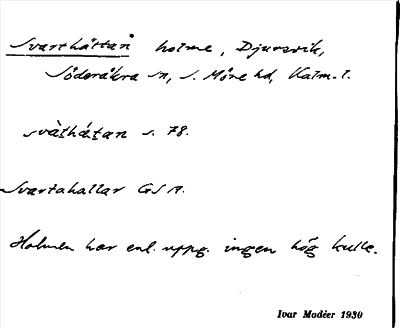 Svarthättan holme, Djursvik,
Söderåkra sn, S. Möre hd, Kalm. l.
svàṭhátan s. 78.
Svartahallar GSA.
Holmen har enl. uppg. ingen hög kulle.
Ivar Modéer 1930